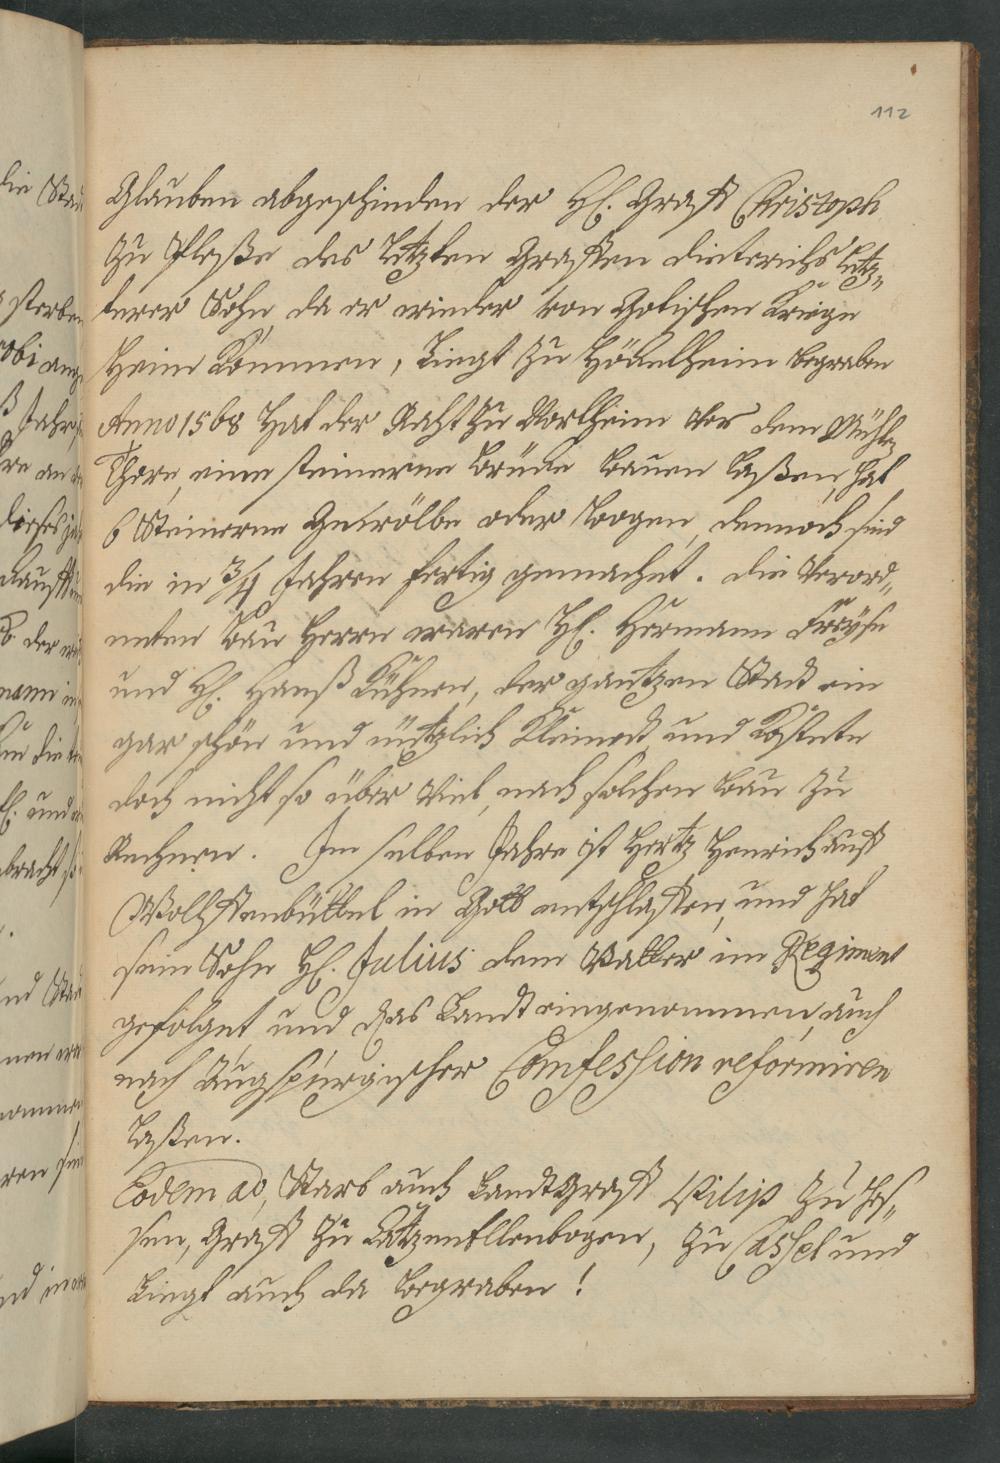 112
Glauben abgeschieden der H. Graff Christoph
zu Pleße des letzten Graffen Dieterichs letz„
terer Sohn, da er wieder von Gotischen Kriege
Heim kommen, Liegt zu Höckelheim begraben
Anno 1568 Hat der Raht zu Northeim vor dem Mühlen
Thore, eine steinerne Brücke bauen laßen, hat
6 Steinerne Gewölbe oder Boogen, dennoch sind
die in 3/4 Jahren fertig gemachet. Die Verord„
neten Bau Herren waren H. Hermann
und H. Hanß Kühnen, der gantzen Stadt ein
gar schön und nützlich Kleinodt, und kostete
doch nicht so über viel, nach solchen bau zu
Rechnen. Im selben Jahre ist Hertz Henrich auff
Wolffenbüttel in Gott entschlaffen, und hat
sein Sohn H. Julius dem Vatter im Regiment
gefolget, und das Landt eingenommen, auch
nach Augspurgischer Confession reformiren
laßen.
Eodem ao, Starb auch Landtgraff Vilip zu Hes„
sen, Graff zu Catzenellenbogen, zu Cassel und
Liegt auch da begraben!